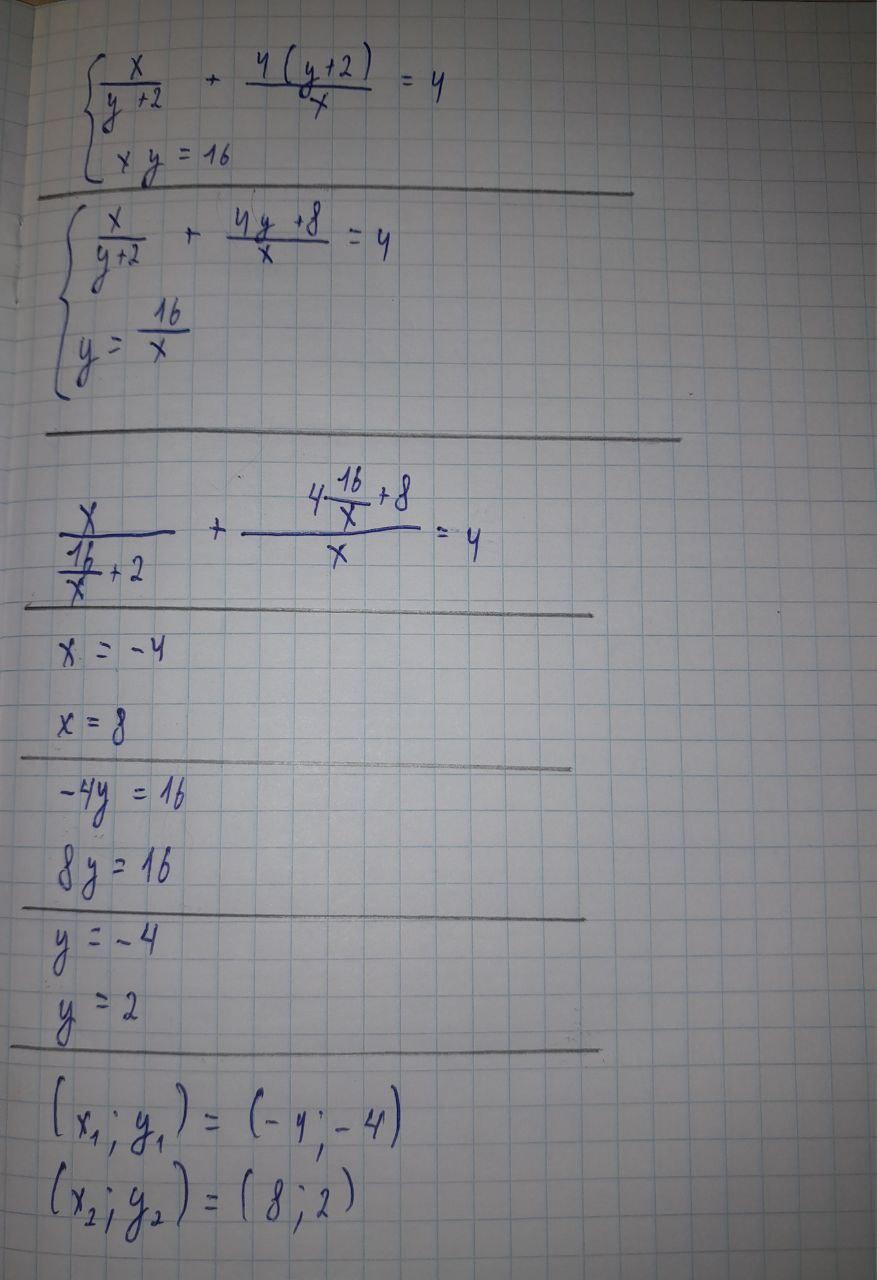 x/(y+2) + 4(y+2)/x = 4
xy = 16
x/(y+2) + (4y+8)/x = 4
y = 16/x
x/(16/x + 2) + (4·16/x + 8)/x = 4
x = -4
x = 8
-4y = 16
8y = 16
y = -4
y = 2
(x₁; y₁) = (-4; -4)
(x₂; y₂) = (8; 2)